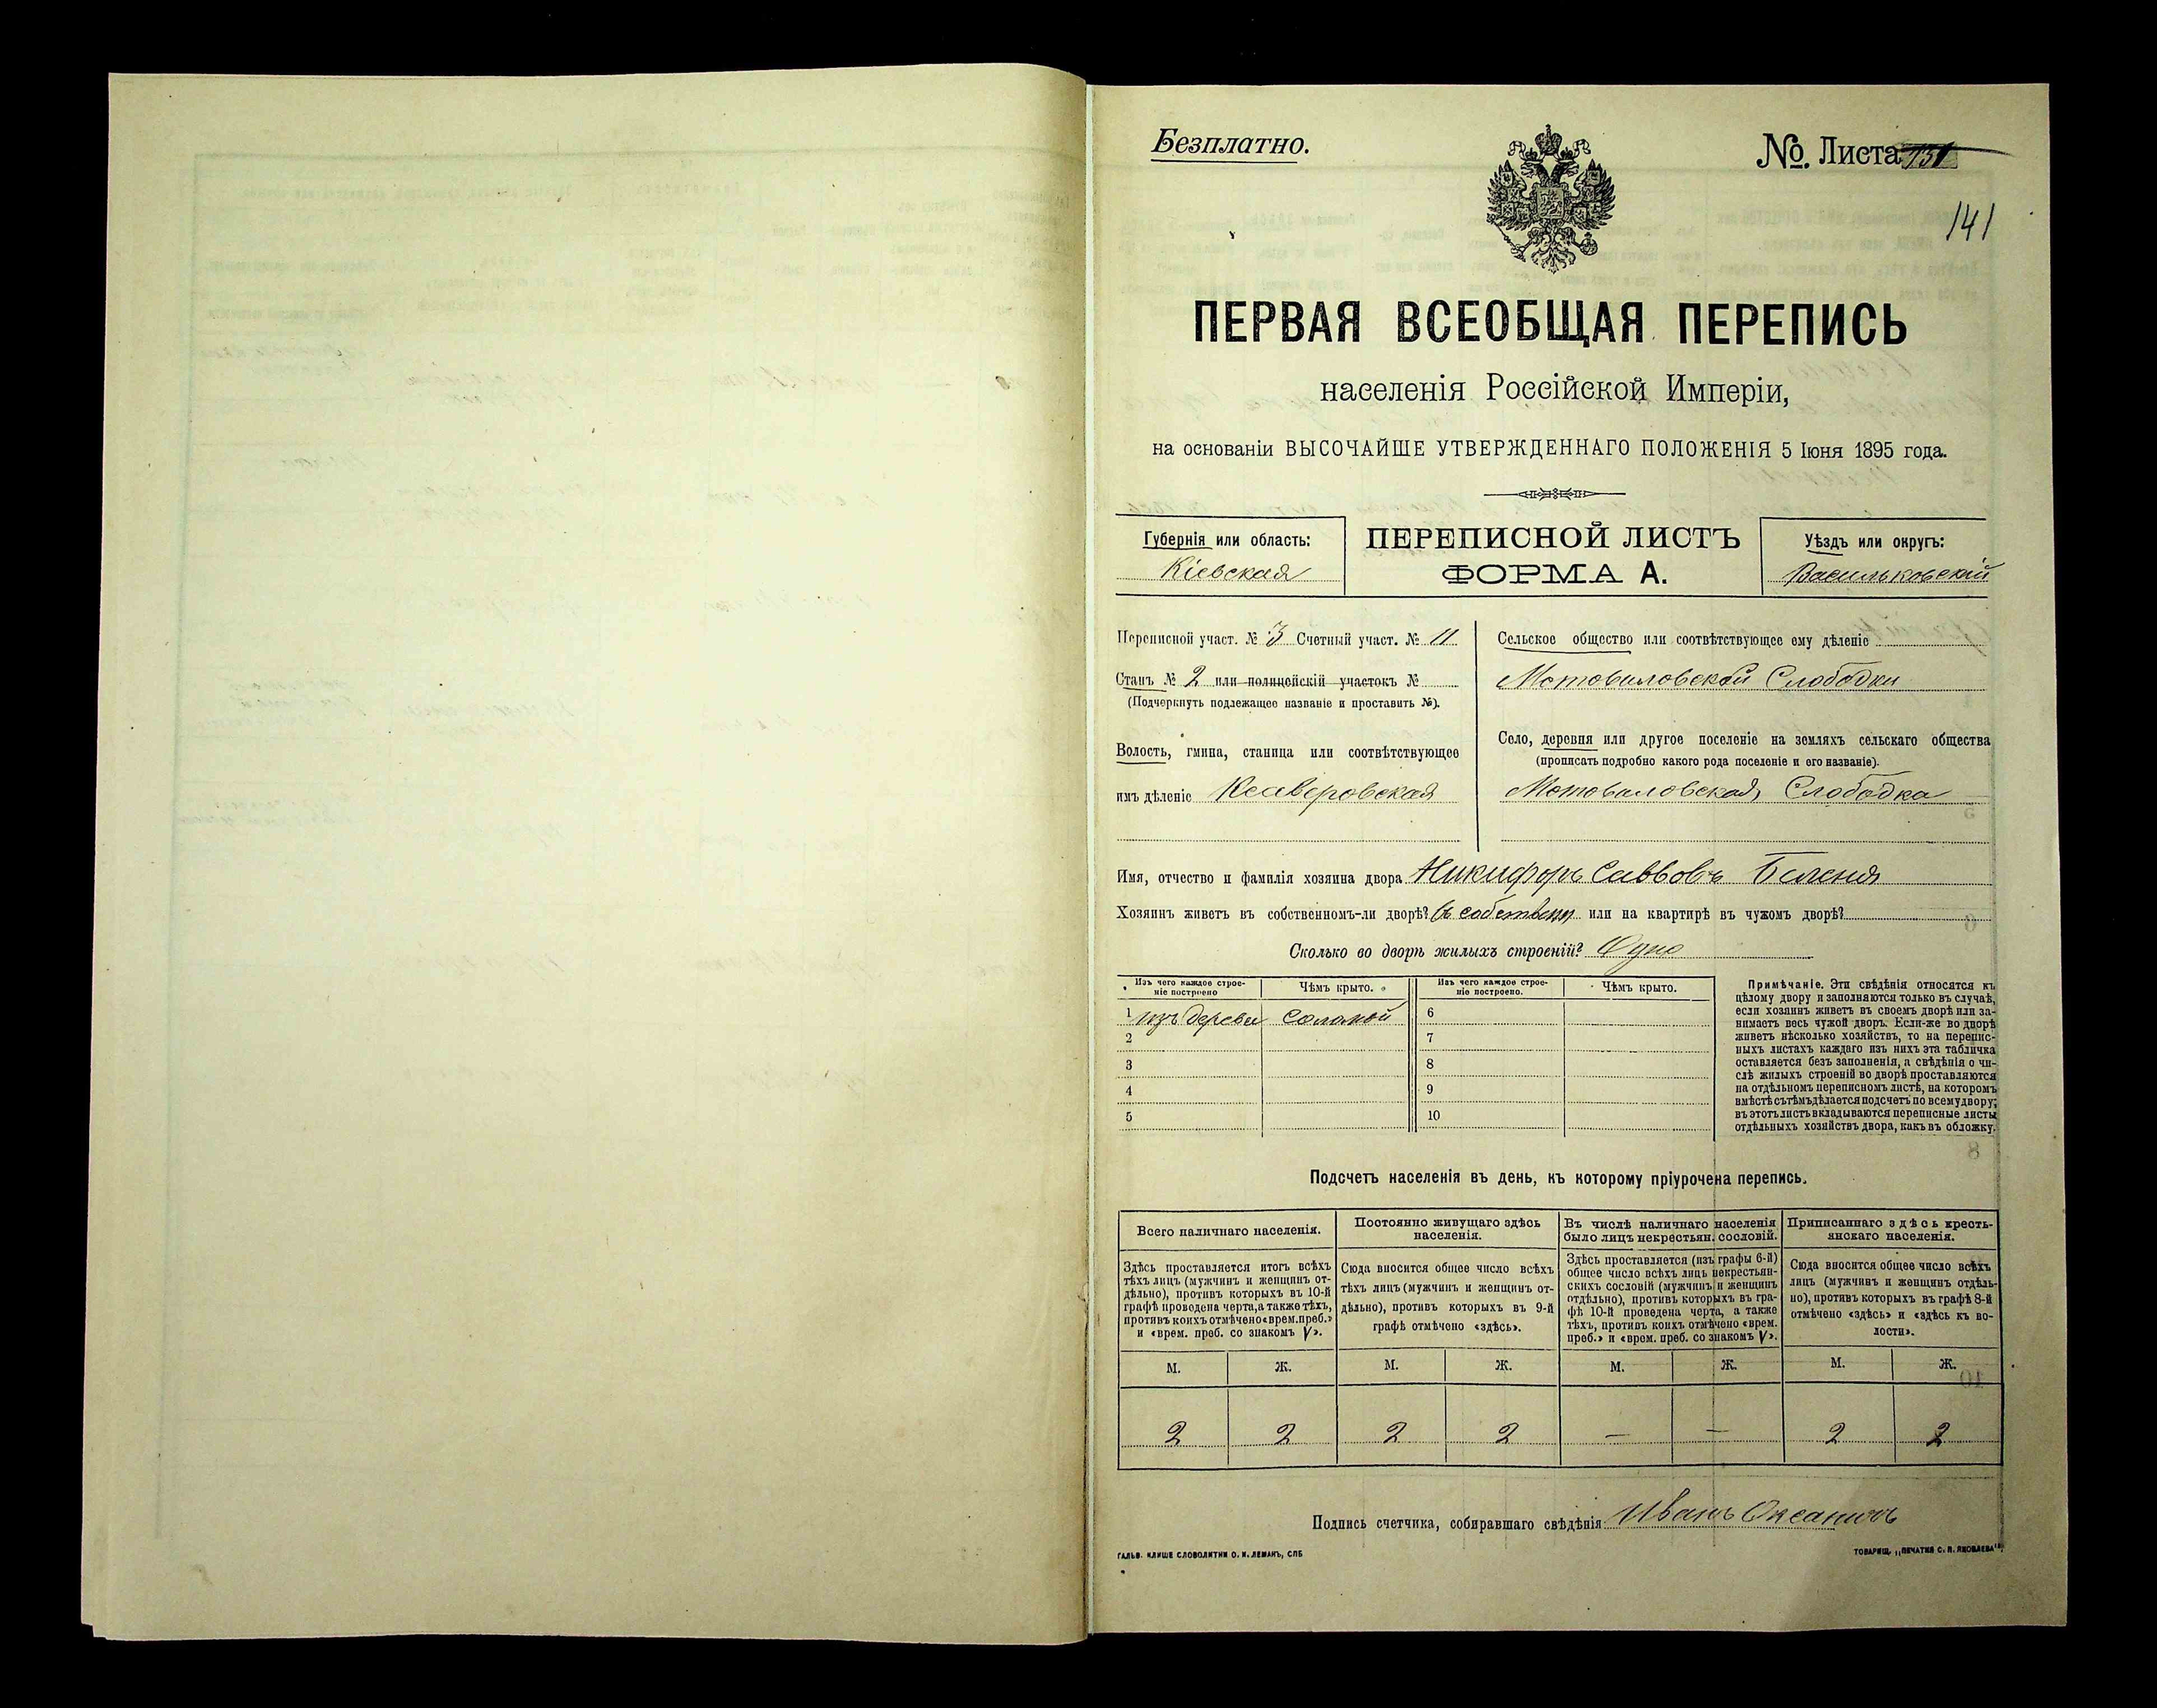 Безплатно.
№ Листа 131
141
ПЕРВАЯ ВСЕОБЩАЯ ПЕРЕПИСЬ
населенія Россійской Имперіи,
на основаніи ВЫСОЧАЙШЕ УТВЕРЖДЕННАГО ПОЛОЖЕНІЯ 5 Іюня 1895 года.
Губернія или область:
Кіевская
ПЕРЕПИСНОЙ ЛИСТЪ
ФОРМА А.
Уѣздъ или округъ:
Васильковскій
Переписной участ. № 3 Счетный участ. № 11
Станъ № 2 или полицейскій участокъ №
(Подчеркнуть подлежащее названіе и проставить №).
Волость, гмина, станица или соотвѣтствующее
имъ дѣленіе Ксаверовская
Сельское общество или соотвѣтствующее ему дѣленіе
Мотовиловской Слободки
Село, деревня или другое поселеніе на земляхъ сельскаго общества
(прописать подробно какого рода поселеніе и его названіе).
Мотовиловская Слободка
Имя, отчество и фамилія хозяина двора Никифоръ Саввовъ
Хозяинъ живетъ въ собственномъ-ли дворѣ? въ собствен или на квартирѣ въ чужомъ дворѣ?
Сколько во дворѣ жилыхъ строеній? Одно
Изъ чего каждое строе-
ніе построено
Чѣмъ крыто.
Изъ чего каждое строе-
ніе построено.
Чѣмъ крыто.
1 изъ дерева соломой 6
2 7
3 8
4 9
5 10
Примѣчаніе. Эти свѣдѣнія относятся къ
цѣлому двору и заполняются только въ случаѣ,
если хозяинъ живетъ въ своемъ дворѣ или за-
нимаетъ весь чужой дворъ. Если-же во дворѣ
живетъ нѣсколько хозяйствъ, то на перепис-
ныхъ листахъ каждаго изъ нихъ эта табличка
оставляется безъ заполненія, а свѣдѣнія о чи-
слѣ жилыхъ строеній во дворѣ проставляются
на отдѣльномъ переписномъ листѣ, на которомъ
вмѣстѣ съ тѣмъ дѣлается подсчетъ по всему двору;
въ этотъ листъ вкладываются переписные листы
отдѣльныхъ хозяйствъ двора, какъ въ обложку.
Подсчетъ населенія въ день, къ которому пріурочена перепись.
Всего наличнаго населенія.
Здѣсь проставляется итогъ всѣхъ
тѣхъ лицъ (мужчинъ и женщинъ от-
дѣльно), противъ которыхъ въ 10-й
графѣ проведена черта, а также тѣхъ,
противъ коихъ отмѣчено «врем. преб.»
и «врем. преб. со знакомъ V».
Постоянно живущаго здѣсь
населенія.
Сюда вносится общее число всѣхъ
тѣхъ лицъ (мужчинъ и женщинъ от-
дѣльно), противъ которыхъ въ 9-й
графѣ отмѣчено «здѣсь».
Въ числѣ наличнаго населенія
было лицъ некрестьян. сословій.
Здѣсь проставляется (изъ графы 6-й)
общее число всѣхъ лицъ некрестьян-
скихъ сословій (мужчинъ и женщинъ
отдѣльно), противъ которыхъ въ гра-
фѣ 10-й проведена черта, а также
тѣхъ, противъ коихъ отмѣчено «врем.
преб.» и «врем. преб. со знакомъ V».
Приписаннаго здѣсь кресть-
янскаго населенія.
Сюда вносится общее число всѣхъ
лицъ (мужчинъ и женщинъ отдѣль-
но), противъ которыхъ въ графѣ 8-й
отмѣчено «здѣсь» и «здѣсь къ во-
лости».
М. Ж. М. Ж. М. Ж. М. Ж.
2 2 2 2 — — 2 2
Подпись счетчика, собиравшаго свѣдѣнія Иванъ
ГАЛЬВ. КЛИШЕ СЛОВОЛИТНИ О. И. ЛЕМАНЪ, СПБ
ТОВАРИЩ. „ПЕЧАТНЯ С. П. ЯКОВЛЕВА“